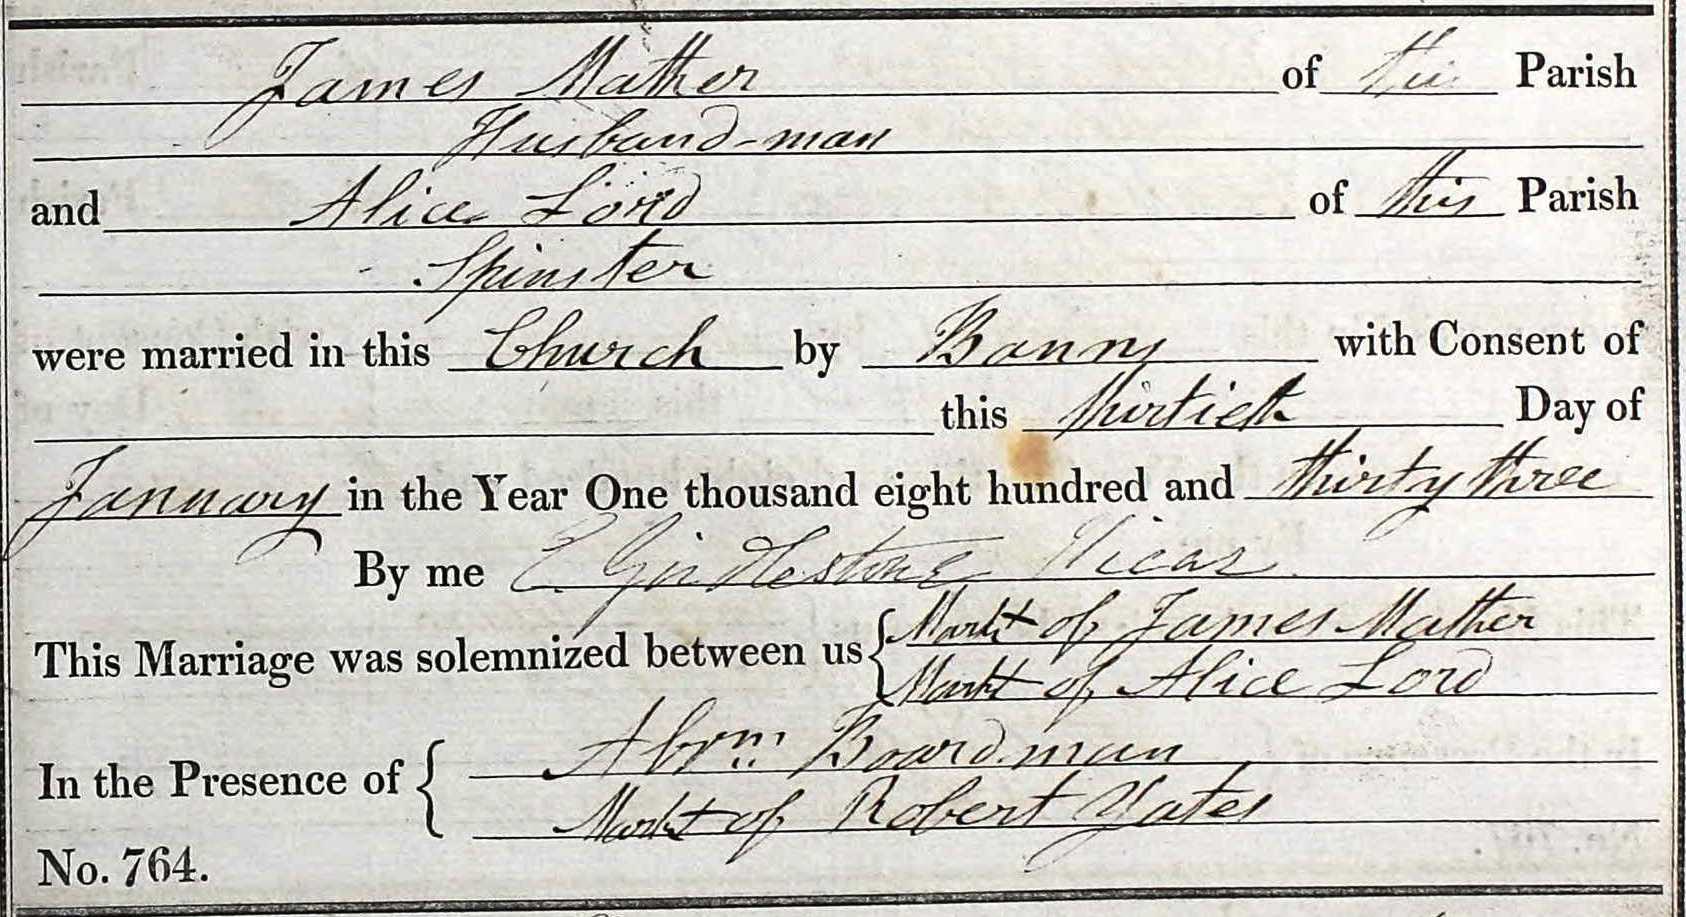 James Mather of this Parish
Husband-man
and Alice Lord of this Parish
Spinster
were married in this Church by Banns with Consent of
this thirtieth Day of
January in the Year One thousand eight hundred and thirty three
By me C Girdlestone Vicar
This Marriage was solemnized between us { Mark + of James Mather
Mark + of Alice Lord
In the Presence of { Abrm Boardman
Mark + of Robert Yates
No. 764.